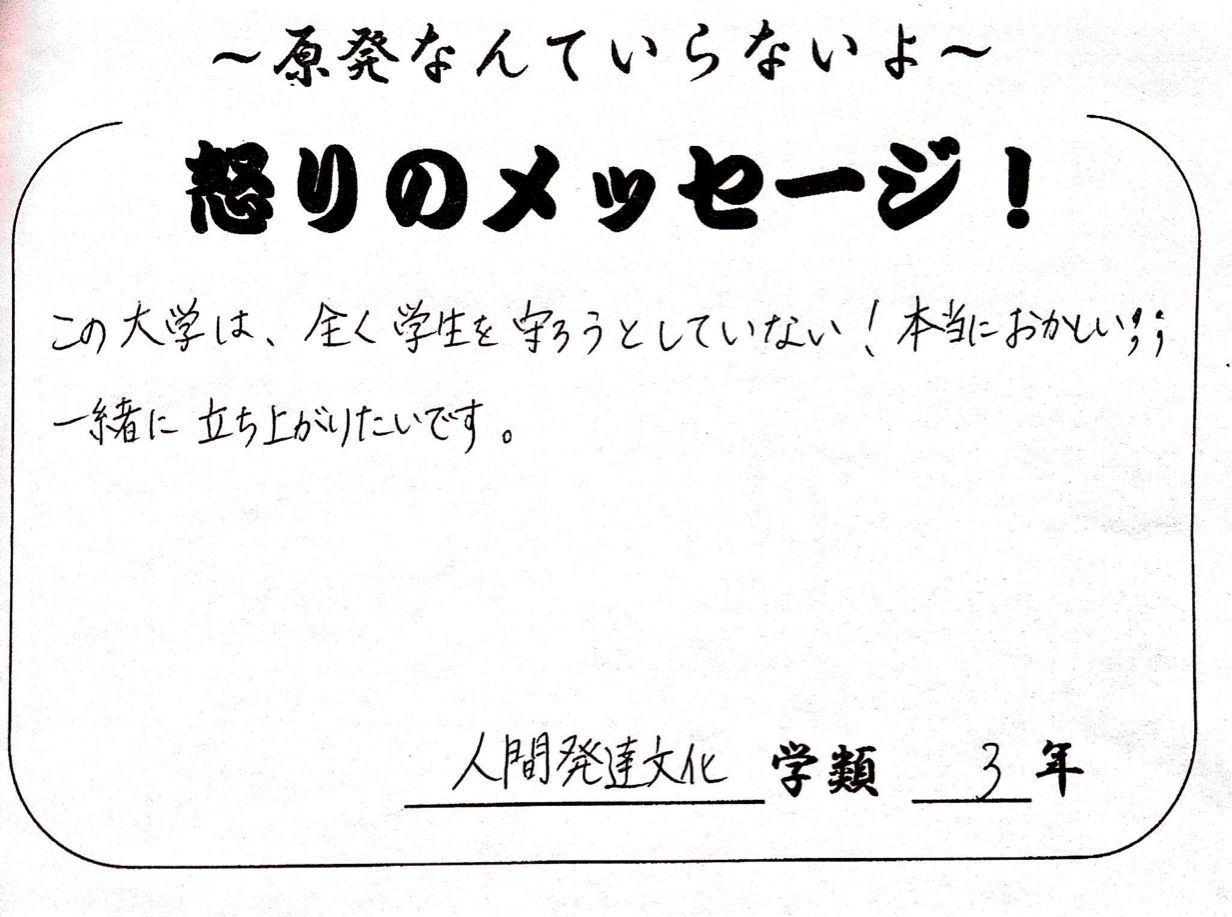 ～原発なんていらないよ～
怒りのメッセージ！
この大学は、全く学生を守ろうとしていない！本当におかしい;;
一緒に立ち上がりたいです。
人間発達文化 学類 3 年